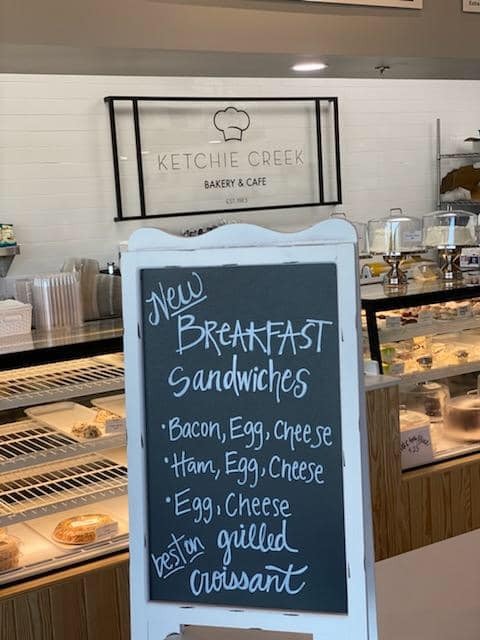 KETCHIE CREEK
BAKERY & CAFE
New
BREAKFAST
Sandwiches
• Bacon, Egg, Cheese
• Ham, Egg, Cheese
• Egg, Cheese
best on grilled
croissant